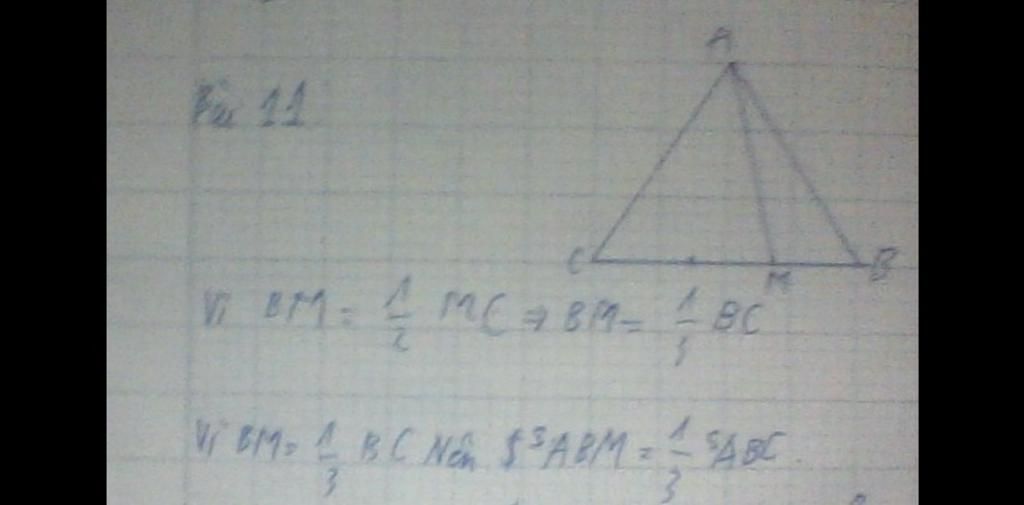 A
Bài 11
C M B
Vì BM = 1/2 MC => BM = 1/3 BC
Vì BM = 1/3 BC Nên SABM = 1/3 SABC.